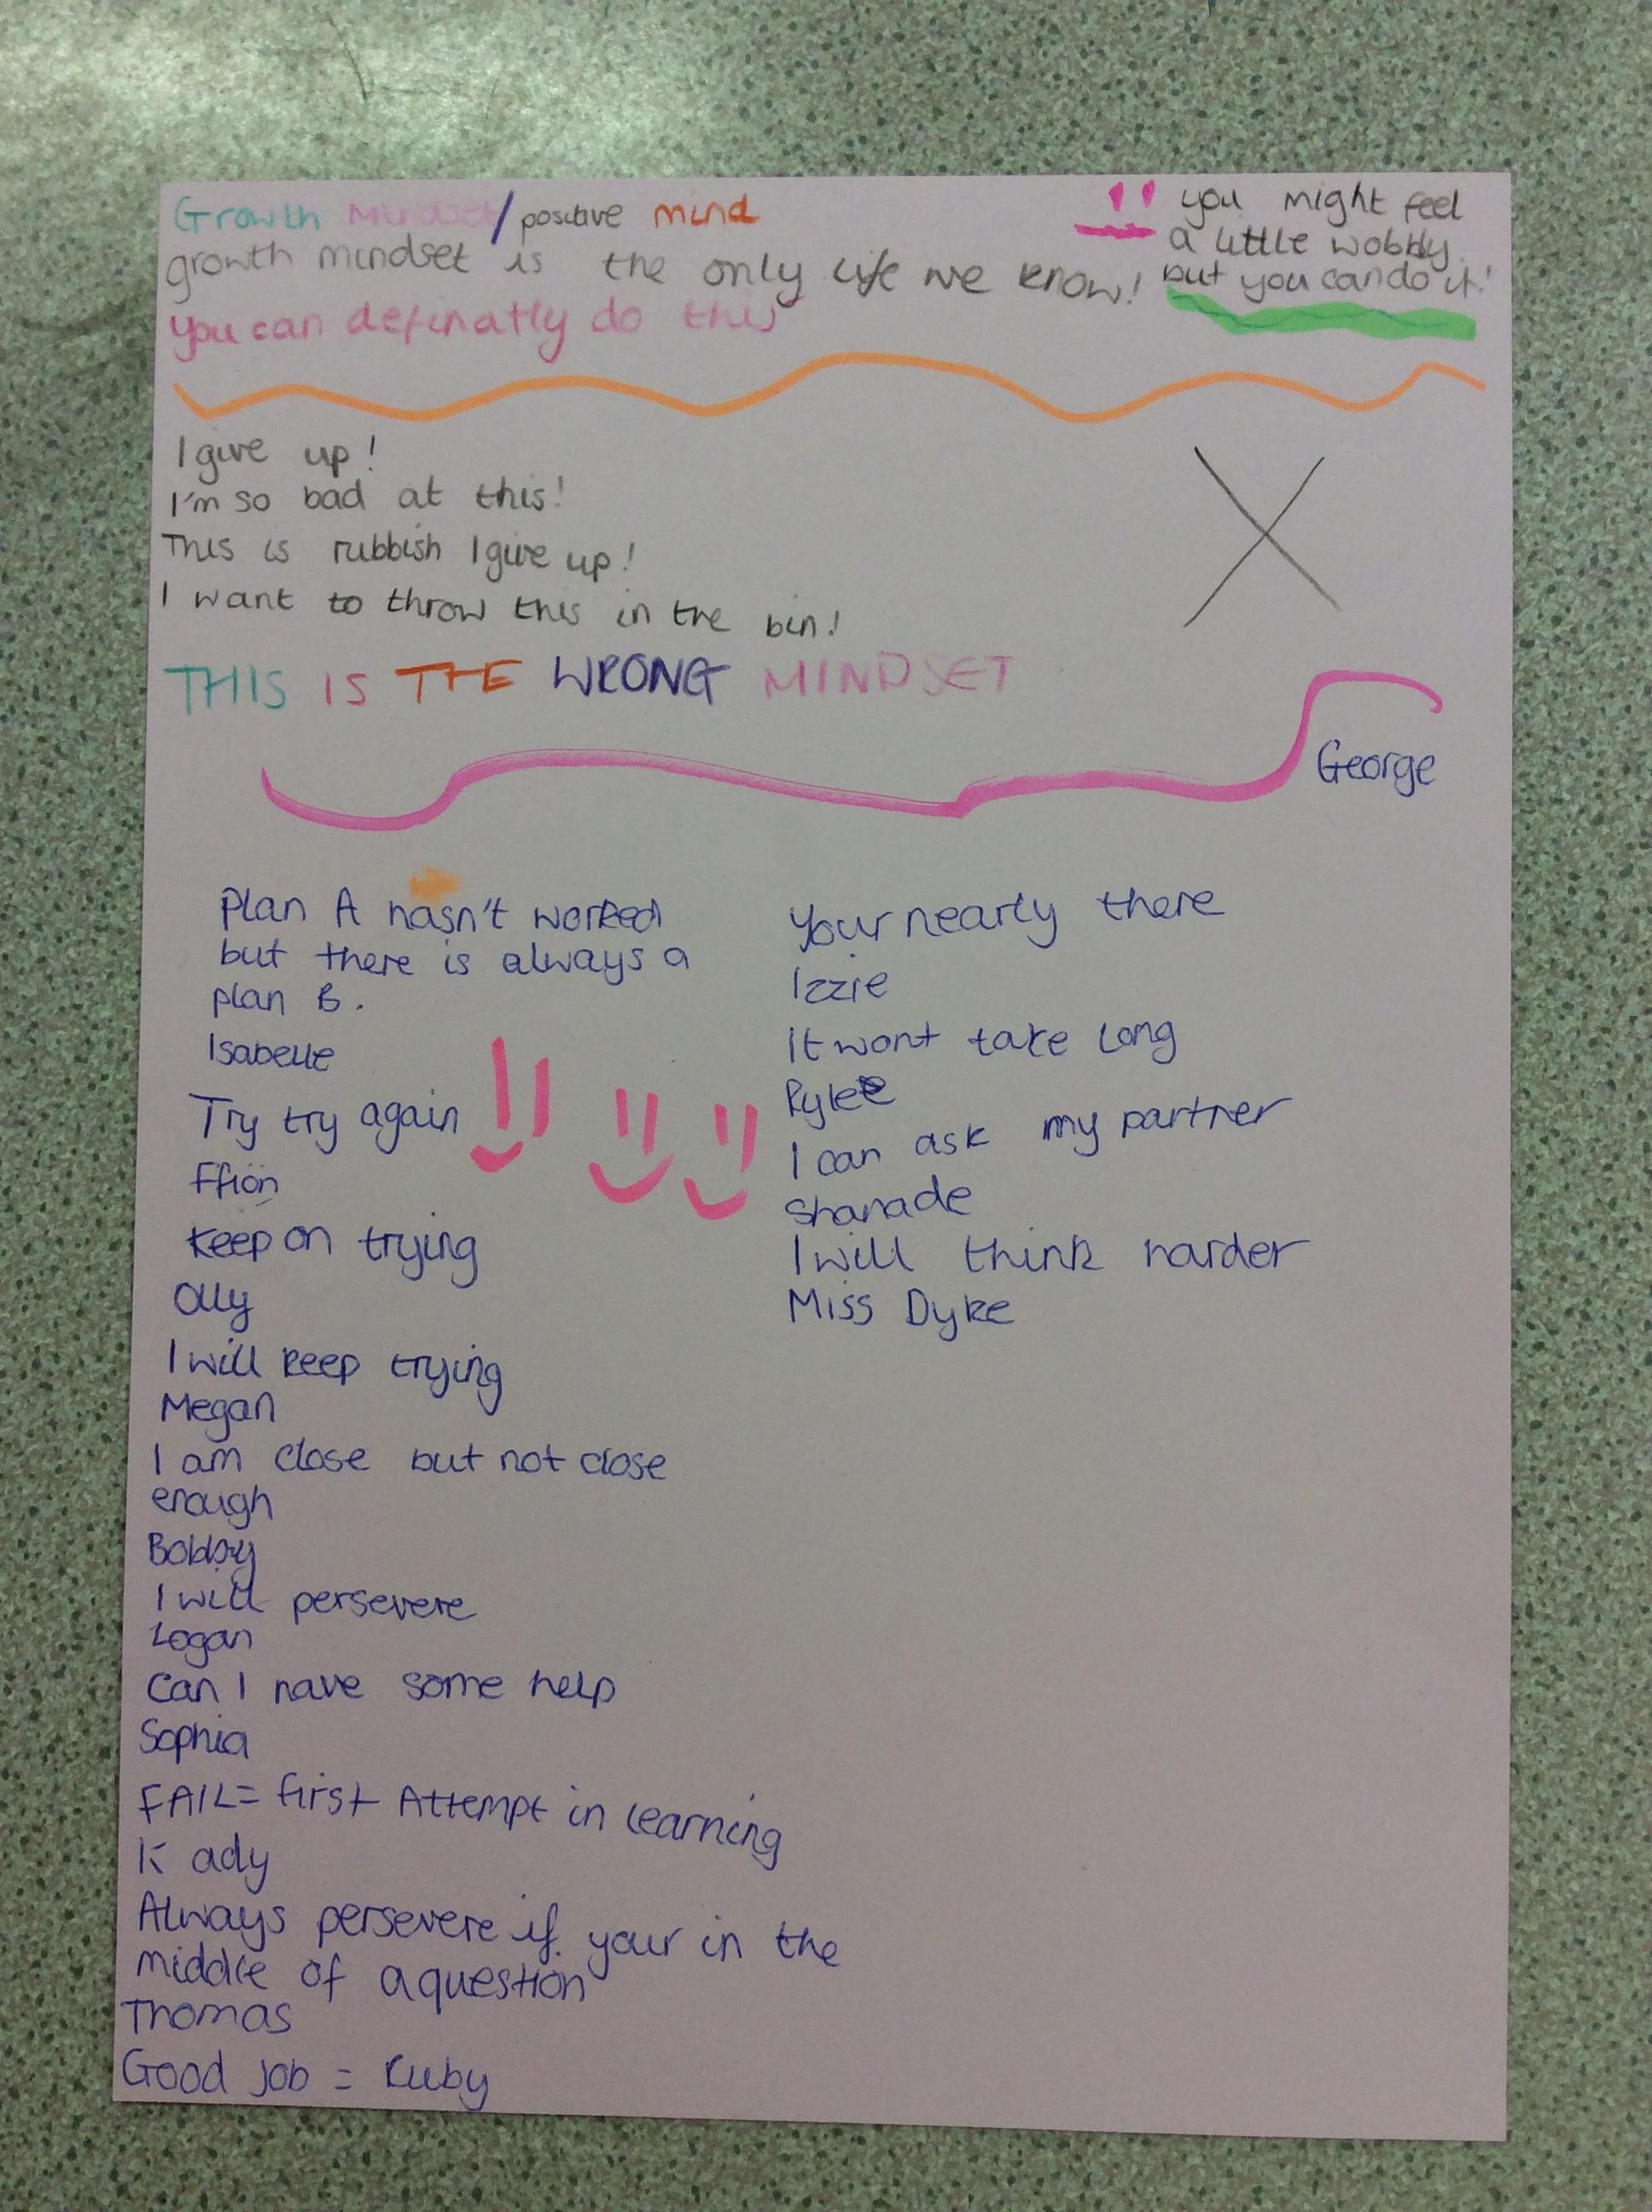 Growth Mindset/positive mind
growth mindset is the only life we know!
you can definatly do this
you might feel
a little wobbly
but you can do it!
I give up!
I'm so bad at this!
This is rubbish I give up!
I want to throw this in the bin!
THIS IS THE WRONG MINDSET
George
Plan A hasn't worked
but there is always a
plan B.
Isabelle
Try try again
Ffion
Keep on trying
Olly
I will keep trying
Megan
I am close but not close
enough
Bobby
I will persevere
Logan
Can I have some help
Sophia
FAIL = first Attempt in learning
Kady
Always persevere if your in the
middle of a question
Thomas
Good job = Ruby
Your nearly there
Izzie
It wont take long
Rylee
I can ask my partner
Shanade
I will think harder
Miss Dyke